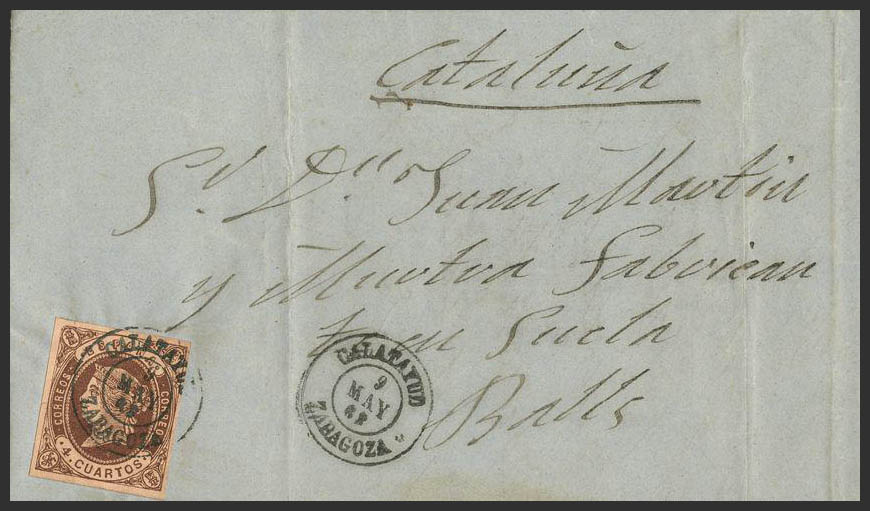 Cataluña
Sr. Dn Juan Martin
y Muotva Fabrican
t en Suela
Balls
CALATAYUD
9
MAY
62
ZARAGOZA
CALATAYUD
MAY
62
ZARAGOZA
CORREOS
CORREOS
4 CUARTOS